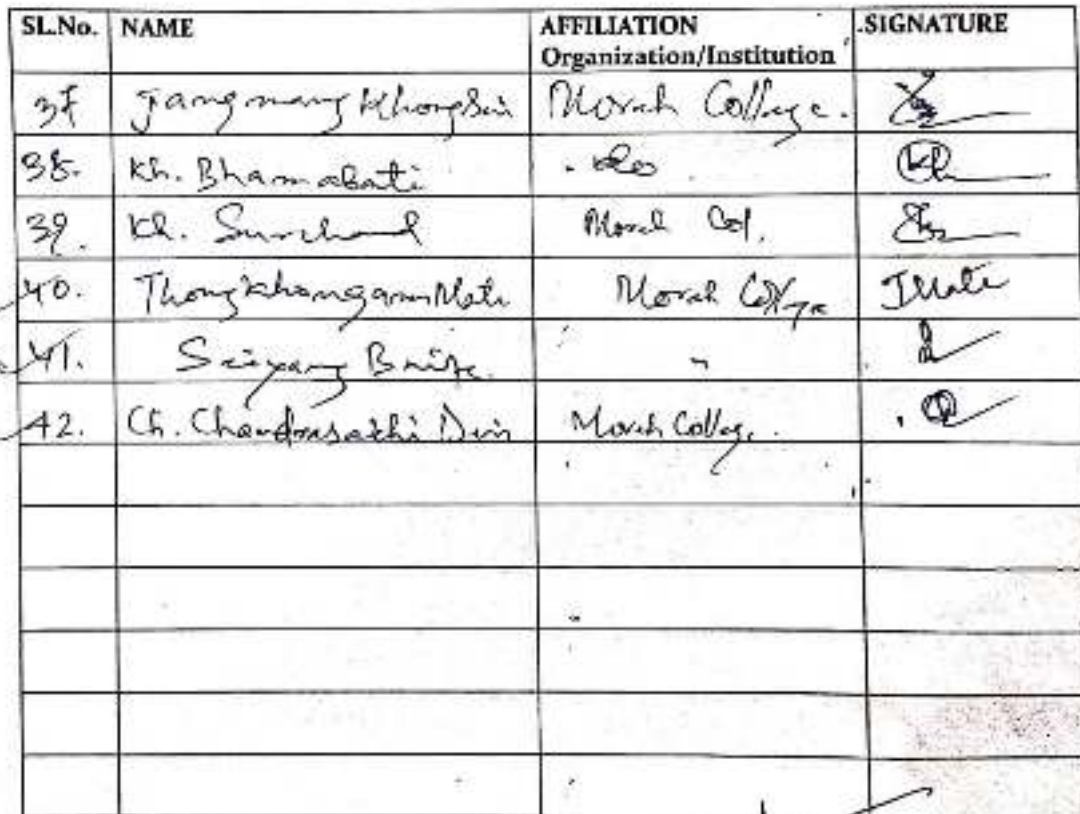 SL.No. NAME AFFILIATION Organization/Institution SIGNATURE
37 Jangmang Khongsai Moreh College.
38. Kh. Bhamabati do
39. Kh. Surchand Moreh Col.
40. Thongkhongam Mate Moreh College TMate
41. "
42. Ch. Chandrasakhi Devi Moreh College.